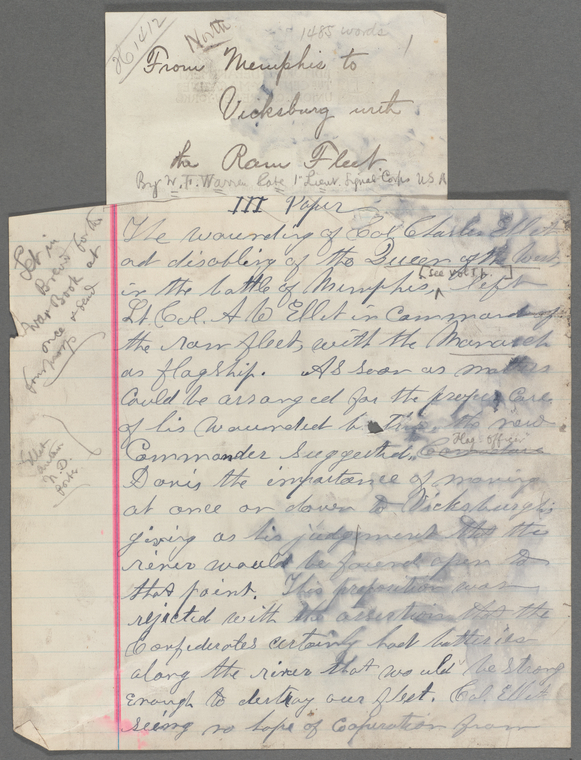 North
1485 words
From Memphis to
Vicksburg with
the Ram Fleet
By W. F. Warren late 1st Lieut. Signal Corps U.S.A
III Paper
Set in
Brevier for the
War Book at
once & send
four proofs
The wounding of Col Charles Ellet
ad disabling of the Queen of the West
[see vol I p. ]
in the battle of Memphis, left
Lt. Col. A W Ellet in command of
the ram fleet, with the Monarch
as flagship. As soon as matters
could be arranged for the proper care
of his wounded the new
Flag officer
Commander suggested Commodore
Davis the importance of moving
at once on down to Vicksburg
giving as his judgement that the
river would be found open to
that point. This proposition was
rejected with the assertion that the
Confederates certainly had batteries
along the river that would be strong
enough to destroy our fleet. Col. Ellet
seeing no hope of Cooperation from